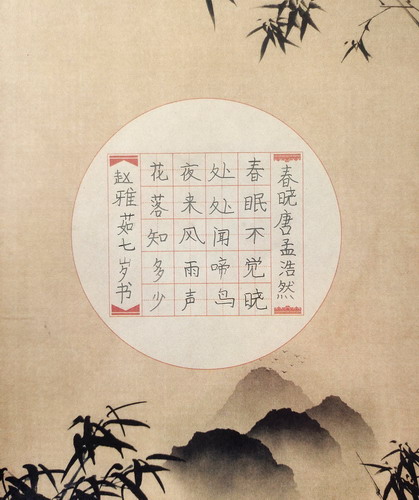 春晓唐孟浩然
春眠不觉晓
处处闻啼鸟
夜来风雨声
花落知多少
赵雅茹七岁书